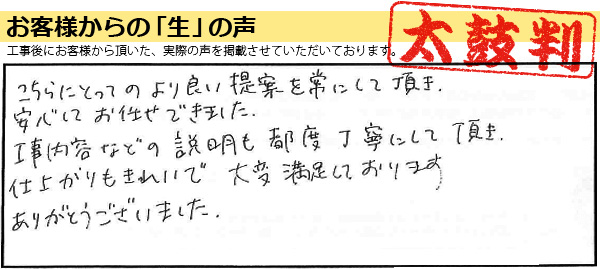 お客様からの「生」の声
太鼓判
工事後にお客様から頂いた、実際の声を掲載させていただいております。
こちらにとってのより良い提案を常にして頂き、
安心してお任せできました。
工事内容などの説明も都度丁寧にして頂き、
仕上がりもきれいで大変満足しております
ありがとうございました。